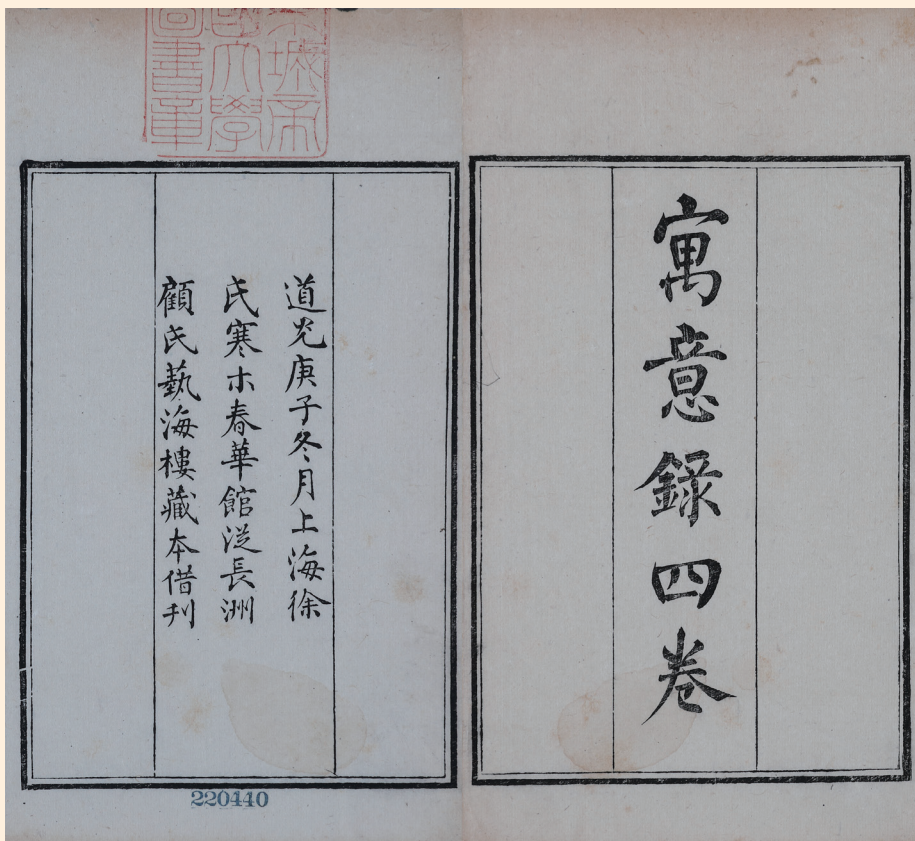 寓意錄四卷
道光庚子冬月上海徐
氏寒木春華館從長洲
顧氏藝海樓藏本借刊
城帝
國大學
圖書章
220440